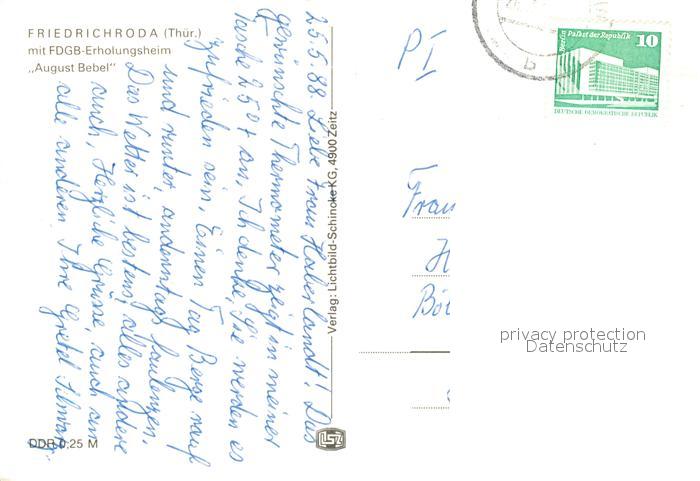 FRIEDRICHRODA (Thür.)
mit FDGB-Erholungsheim
„August Bebel"
25.5.88 Liebe Frau Haberlandt! Das
gewünschte Thermometer zeigt in meiner
Tasche 25°+ an, Ich denke, Sie werden es
zufrieden sein. Einen Tag Berge rauf
und runter, anderntags faulenzen.
Das Wetter ist bestens, alles andere
auch, Herzliche Grüsse, auch an
alle anderen Ihre Gretel
DDR 0,25 M
Verlag: Lichtbild-Schincke KG, 4900 Zeitz
LSZ
PI
b
Berlin Palast der Republik
10
DEUTSCHE DEMOKRATISCHE REPUBLIK
Frau
H
Bö
privacy protection
Datenschutz